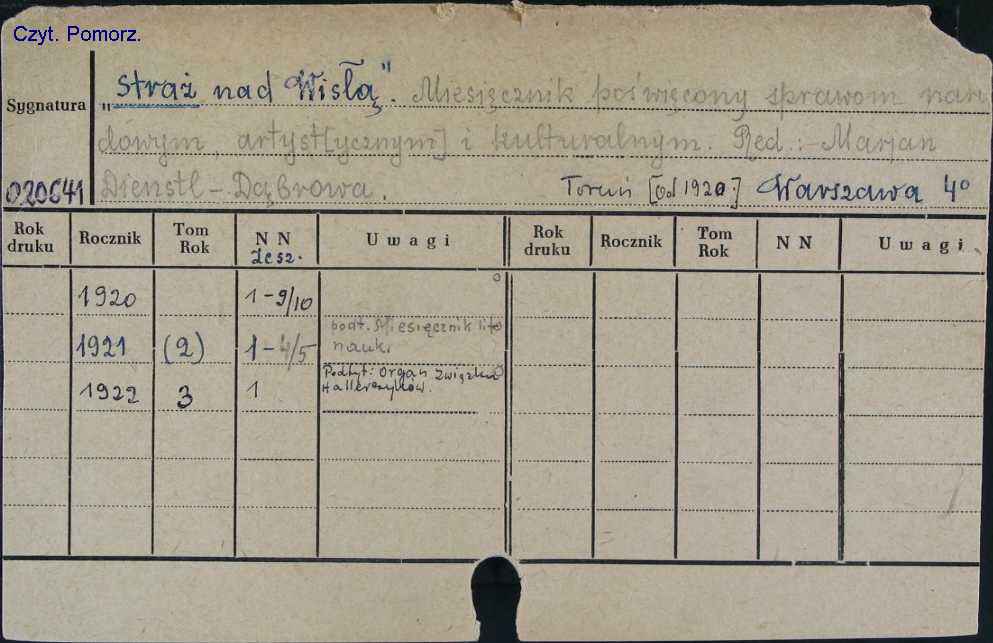 Czyt. Pomorz.
Sygnatura
„Straż nad Wisłą". Miesięcznik poświęcony sprawom naro
dowym, artyst[ycznym] i kulturalnym. Red.: Marjan
020641 Dienstl-Dąbrowa. Toruń [od 1920:] Warszawa 4°
Rok druku Rocznik Tom Rok N N zesz. Uwagi Rok druku Rocznik Tom Rok N N Uwagi
1920 1-9/10
1921 (2) 1-4/5 podt. Miesięcznik lit.
nauk.
1922 3 1 Podtyt: Organ Związku
Hallerczyków.